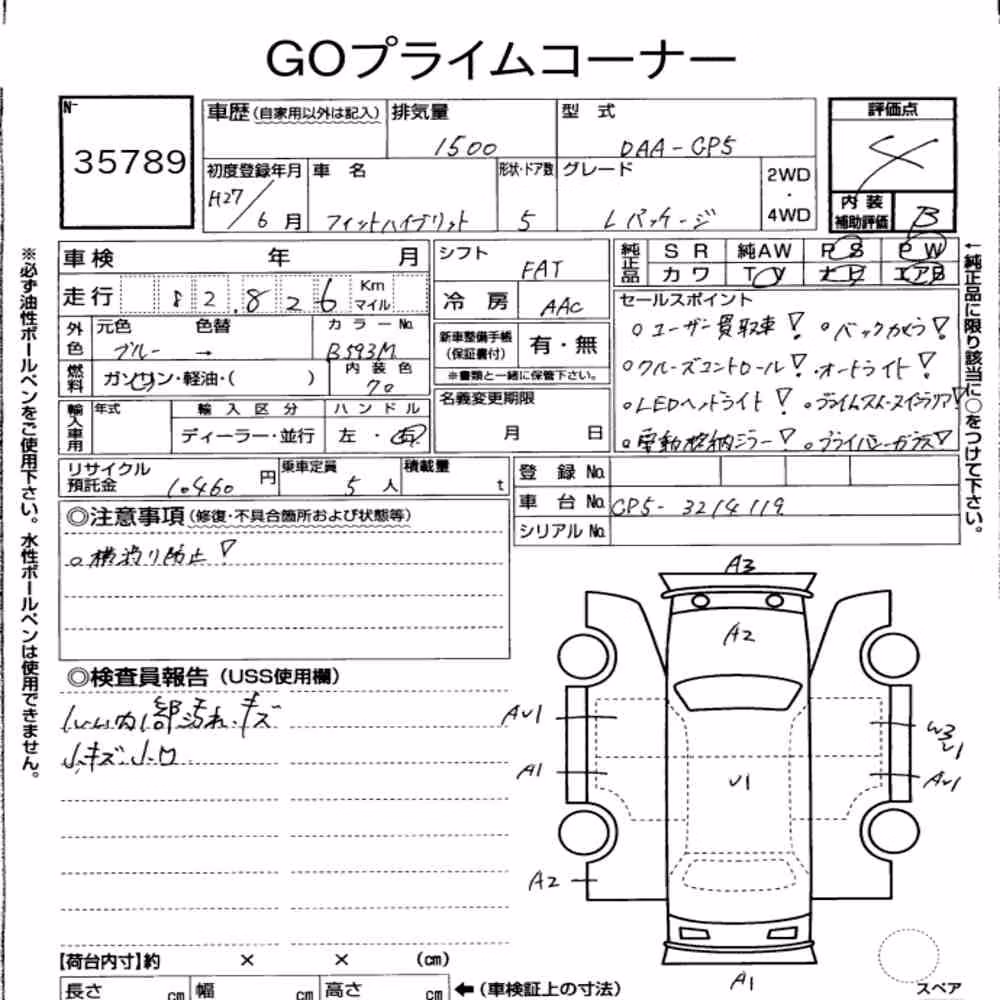 GOプライムコーナー
N-
35789
車歴(自家用以外は記入) 排気量 型 式 評価点
1500 DAA-GP5 4
初度登録年月 車 名 形状・ドア数 グレード 2WD ・ 4WD
H27/6月 フィットハイブリット 5 Lパッケージ
内装補助評価 B
※必ず油性ボールペンをご使用下さい。水性ボールペンは使用できません。
車検 年 月 シフト FAT
走行 82.826 Km マイル
冷房 AAC
外色 元色 色替 カラーNo.
ブルー → B593M
燃料 ガソリン・軽油・( ) 内装色 70
新車整備手帳(保証書付) 有・無
※書類と一緒に保管下さい。
輸入車用 年式 輸入区分 ハンドル
ディーラー・並行 左・右
名義変更期限
月 日
純正品 SR 純AW PS PW
カワ TV ナビ エアB
セールスポイント
○ユーザー買取車! ○バックカメラ!
○クルーズコントロール! ・オートライト!
○LEDヘッドライト!
○電動格納ミラー! ○プライバシーガラス!
←純正品に限り該当に○をつけて下さい。
リサイクル預託金 10460円 乗車定員 5人 積載量 t
登録No.
車台No. GP5-3214119
シリアルNo.
◎注意事項(修復・不具合箇所および状態等)
○横滑り防止!
◎検査員報告(USS使用欄)
内部汚れ・キズ
小キズ・凹
A3
A2
AU1
W3
U1
A1
U1
AU1
A2
A1
【荷台内寸】約 × × (cm)
長さ cm 幅 cm 高さ cm ←(車検証上の寸法)
スペア